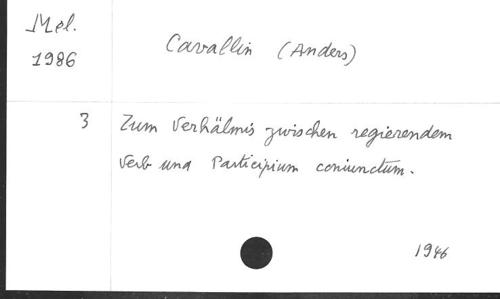 Mel.
1986
Cavallin (Anders)
3 Zum Verhälmis zwischen regierendem
Verb und Participium coniunctum.
1946